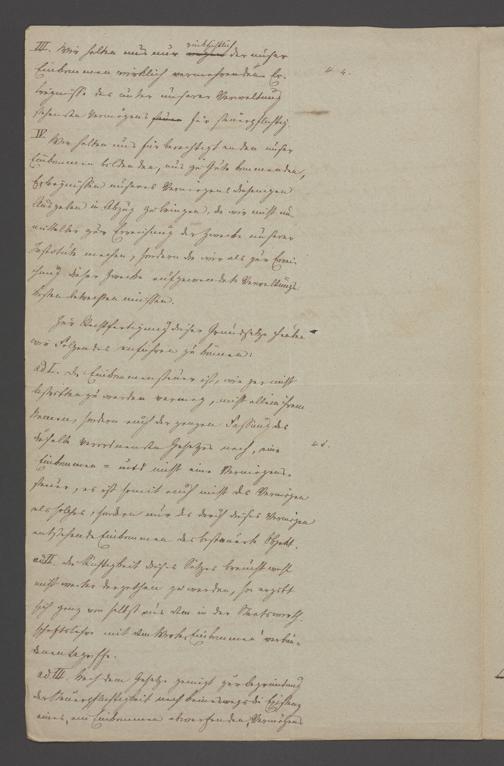 III. Wir halten uns nur rücksichtlich der unser
Einkommen wirklich vermehrenden Er-
trägnisse des unter unserer Verwaltung
stehenden Vermögens für steuerpflichtig.
IV. Wir halten uns für berechtigt von den unser
Einkommen bildenden, uns zu Gute kommenden,
Erträgnissen unseres Vermögens diejenigen
Ausgaben in Abzug zu bringen, die wir nicht un-
mittelbar zur Erreichung der Zwecke unserer
Institute machen, sondern die wir als zur Errei-
chung dieser Zwecke aufgewendete Verwaltungs-
kosten betrachten müssen.
Zur Rechtfertigung dieser Grundsätze haben
wir Folgendes anzuführen zu können:
ad I. Die Einkommensteuer ist, wie gar nicht
bestritten zu werden vermag, nicht allein ihrem
Namen, sondern auch der ganzen Fassung des
dieselbe verordnenden Gesetzes nach, eine
Einkommen- und nicht eine Vermögens-
steuer, es ist somit auch nicht das Vermögen
als solches, sondern nur das durch dieses Vermögen
entstehende Einkommen das besteuerte Objekt.
ad II. Die Richtigkeit dieses Satzes braucht wohl
nicht weiter dargethan zu werden, sie ergibt
sich ganz von selbst aus dem in der Staatswirth-
schaftslehre mit dem Worte „Einkommen" verbun-
denen Begriffe.
ad III. Nach dem Gesetze genügt zur Begründung
der Steuerpflichtigkeit noch keineswegs die Existenz
eines, ein Einkommen abwerfenden, Vermögens